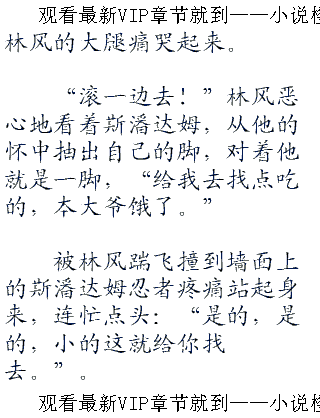 观看最新VIP章节就到——小说
林风的大腿痛哭起来。
“滚一边去！”林风恶
心地看着斯潘达姆，从他的
怀中抽出自己的脚，对着他
就是一脚，“给我去找点吃
的，本大爷饿了。”
被林风踹飞撞到墙面上
的斯潘达姆忍者疼痛站起身
来，连忙点头：“是的，是
的，小的这就给你找
去。”。
观看最新VIP章节就到——小说